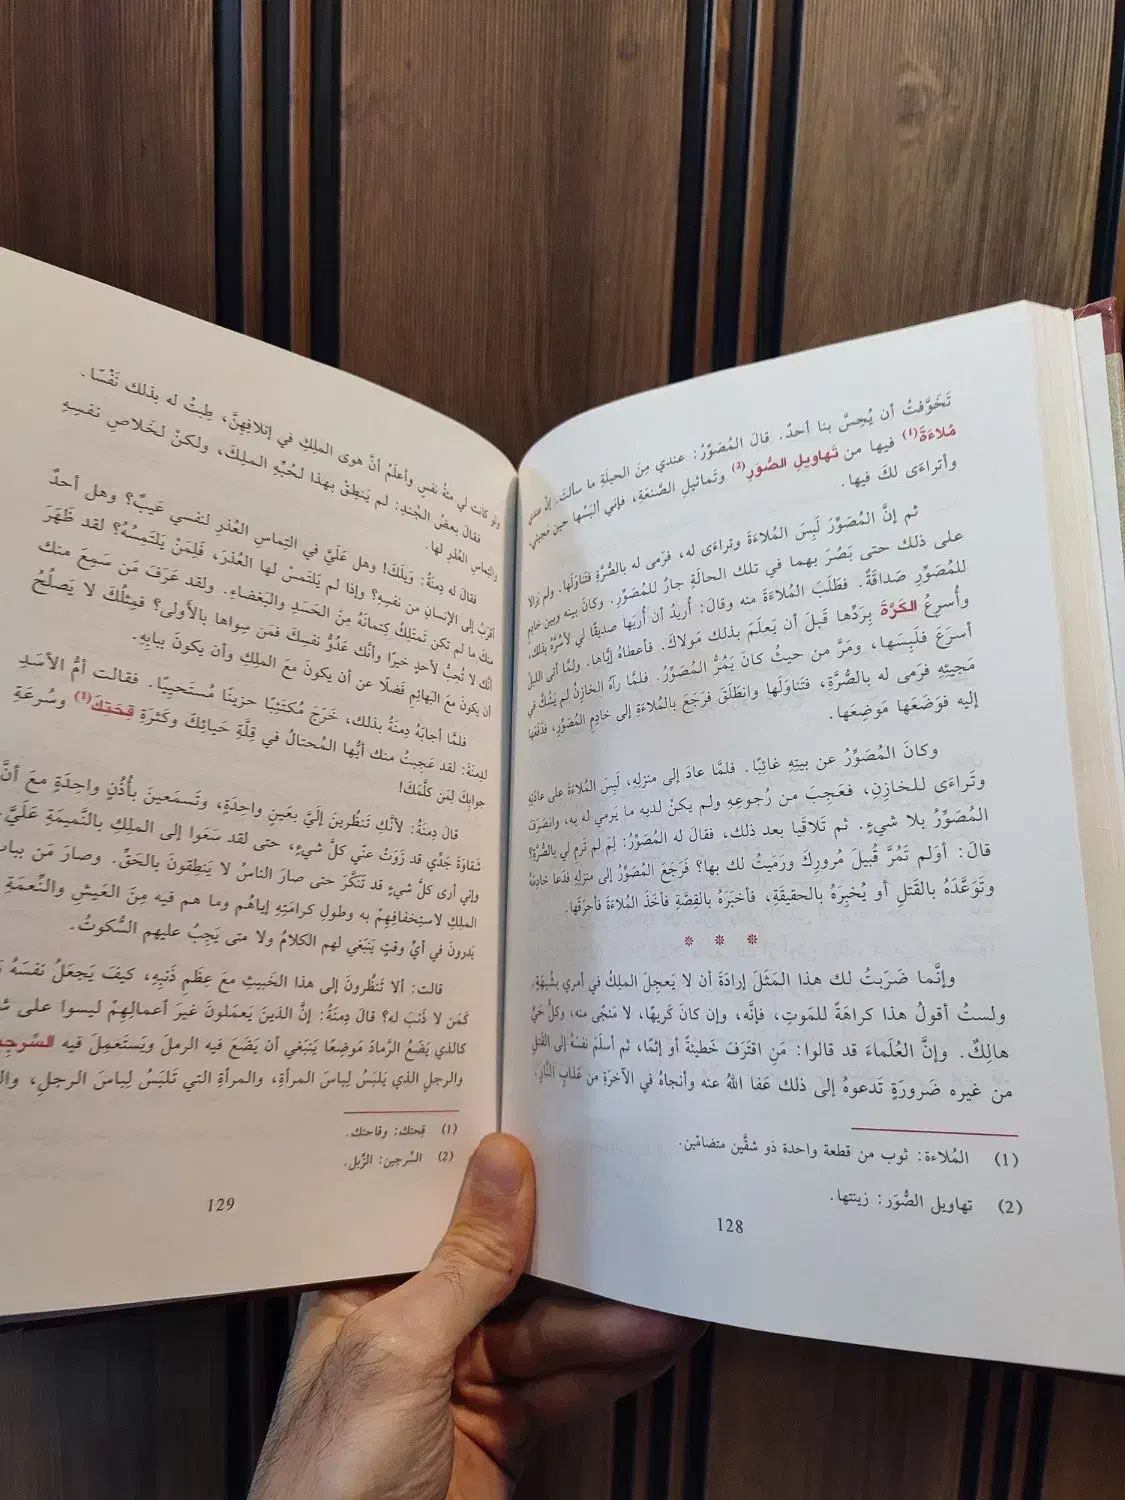 تَخَوَّفتُ أن يُحِسَّ بنا أحدٌ. قالَ المُصَوِّرُ: عندي مِنَ الحيلَةِ ما سألتَ. إنَّ عندي
مُلاءَةً(1) فيها من تَهاويلِ الصُّوَرِ(2) وتَماثيلِ الصَّنعَةِ، فإني ألبَسُها حين مَجيئي،
وأتراءَى لكَ فيها.
ثم إنَّ المُصَوِّرَ لَبِسَ المُلاءَةَ وتراءَى له، فرَمى له بالصُّرَّةِ فتَناوَلَها. ولم يَزالا
على ذلك حتى بَصُرَ بهما في تلك الحالَةِ جارٌ للمُصَوِّرِ. وكانَ بينه وبين خادِمِ
للمُصَوِّرِ صداقَةٌ. فطَلَبَ المُلاءَةَ منه وقالَ: أُريدُ أن أُرِيَها صديقًا لي لأسُرَّهُ بذلك،
وأُسرِعُ الكَرَّةَ بِرَدِّها قَبلَ أن يَعلَمَ بذلك مَولاكَ. فأعطاهُ إيَّاها. ولمَّا أتى الليلُ
أسرَعَ فلَبِسَها، ومَرَّ من حيثُ كانَ يَمُرُّ المُصَوِّرُ. فلمَّا رآهُ الخازِنُ لم يَشُكَّ في
مَجيئِهِ فرَمى له بالصُّرَّةِ، فتَناوَلَها وانطَلَقَ فرَجَعَ بالمُلاءَةِ إلى خادِمِ المُصَوِّرِ، فدَفَعَها
إليه فوَضَعَها مَوضِعَها.
وكانَ المُصَوِّرُ عن بيتِهِ غائبًا. فلمَّا عادَ إلى منزلِهِ، لَبِسَ المُلاءَةَ على عادَتِهِ
وتَراءَى للخازِنِ، فعَجِبَ من رُجوعِهِ ولم يكنْ لديه ما يَرمي له به، وانصَرَفَ
المُصَوِّرُ بلا شيءٍ. ثم تَلاقَيا بعد ذلك، فقالَ له المُصَوِّرُ: لِمَ لم تَرمِ لي بالصُّرَّةِ؟
قالَ: أوَلم تَمُرَّ قُبيلَ مُرورِكَ ورَمَيتُ لك بها؟ فرَجَعَ المُصَوِّرُ إلى منزلِهِ فدَعا خادِمَهُ
وتَوَعَّدَهُ بالقَتلِ أو يُخبِرَهُ بالحقيقَةِ، فأخبَرَهُ بالقِصَّةِ فأخَذَ المُلاءَةَ فأحرَقَها.
* * *
وإنَّما ضَرَبتُ لك هذا المَثَلَ إرادَةَ أن لا يَعجِلَ الملِكُ في أمري بشُبهَةٍ.
ولستُ أقولُ هذا كراهَةً للمَوتِ، فإنَّه، وإن كانَ كَريهًا، لا مَنجًى منه، وكلُّ حَيٍّ
هالِكٌ. وإنَّ العُلَماءَ قد قالوا: مَنِ اقتَرَفَ خَطيئَةً أو إثمًا، ثم أسلَمَ نفسَهُ إلى القَتلِ
من غيره ضَرورَةٍ تَدعوهُ إلى ذلك عَفا اللهُ عنه وأنجاهُ في الآخرَةِ من عَذابِ النَّارِ.
(1) المُلاءة: ثوب من قطعة واحدة ذو شقَّين متضامّين.
(2) تهاويل الصُّوَر: زينتها.
128
ولو كانت لي مئةُ نفسٍ وأعلَمُ أنَّ هوى الملِكِ في إتلافِهِنَّ، طِبتُ له بذلك نَفْسًا.
فقالَ بعضُ الجُندِ: لم يَنطِقْ بهذا لحُبِّهِ الملِكَ، ولكنْ لخَلاصِ نفسِهِ
والتِماسِ العُذرِ لها.
فقالَ له دِمنَةُ: وَيلَكَ! وهل عَلَيَّ في التِماسِ العُذرِ لنفسي عَيبٌ؟ وهل أحدٌ
أقرَبُ إلى الإنسانِ من نفسِهِ؟ وإذا لم يَلتَمسْ لها العُذرَ، فلِمَنْ يَلتَمِسُهُ؟ لقد ظَهَرَ
منكَ ما لم تكن تَمتَلِكُ كِتمانَهُ مِنَ الحَسَدِ والبَغضاءِ. ولقد عَرَفَ مَن سَمِعَ منك
أنَّك لا تُحِبُّ لأحدٍ خيرًا وأنَّك عَدُوُّ نفسِكَ فمَن سِواها بالأَولى؟ فمِثلُكَ لا يَصلُحُ
أن يكونَ مَعَ البَهائِمِ فَضلًا عن أن يكونَ مَعَ الملِكِ وأن يكونَ ببابِهِ.
فلمَّا أجابَهُ دِمنَةُ بذلك، خَرَجَ مُكتَئِبًا حزينًا مُستَحيِيًا. فقالت أمُّ الأسَدِ
لدِمنَةَ: لقد عَجِبتُ منك أيُّها المُحتالُ في قِلَّةِ حَيائِكَ وكَثرَةِ قِحَتِكَ(1) وسُرعَةِ
جوابِكَ لِمَن كلَّمَكَ!
قالَ دِمنَةُ: لأنَّكِ تَنظُرينَ إلَيَّ بعَينٍ واحِدَةٍ، وتَسمَعينَ بأُذُنٍ واحِدَةٍ معَ أنَّ
شَقاوَةَ جَدِّي قد زَوَتْ عنّي كلَّ شيءٍ، حتى لقد سَعَوا إلى الملِكِ بالنَّميمَةِ عَلَيَّ.
وإني أرى كلَّ شيءٍ قد تَنَكَّرَ حتى صارَ الناسُ لا يَنطِقونَ بالحَقِّ. وصارَ مَن بباب
الملِكِ لاستِخفافِهِمْ به وطولِ كرامَتِهِ إياهُم وما هم فيه مِنَ العَيشِ والنِّعمَةِ
يَدرونَ في أيِّ وقتٍ يَنبَغي لهم الكلامُ ولا متى يَجِبُ عليهم السُّكوتُ.
قالت: ألا تَنظُرونَ إلى هذا الخَبيثِ مَعَ عِظَمِ ذَنبِهِ، كيفَ يَجعَلُ نفسَهُ
كَمَن لا ذَنبَ له؟ قالَ دِمنَةُ: إنَّ الذينَ يَعمَلونَ غيرَ أعمالِهِمْ ليسوا على
كالذي يَضَعُ الرَّمادَ مَوضِعًا يَنبَغي أن يَضَعَ فيه الرملَ ويَستَعمِلَ فيه السَّرجِ
والرجلِ الذي يَلبَسُ لِباسَ المرأةِ، والمرأةِ التي تَلبَسُ لِباسَ الرجلِ،
(1) قِحتك: وقاحتك.
(2) السَّرجين: الزِّبل.
129